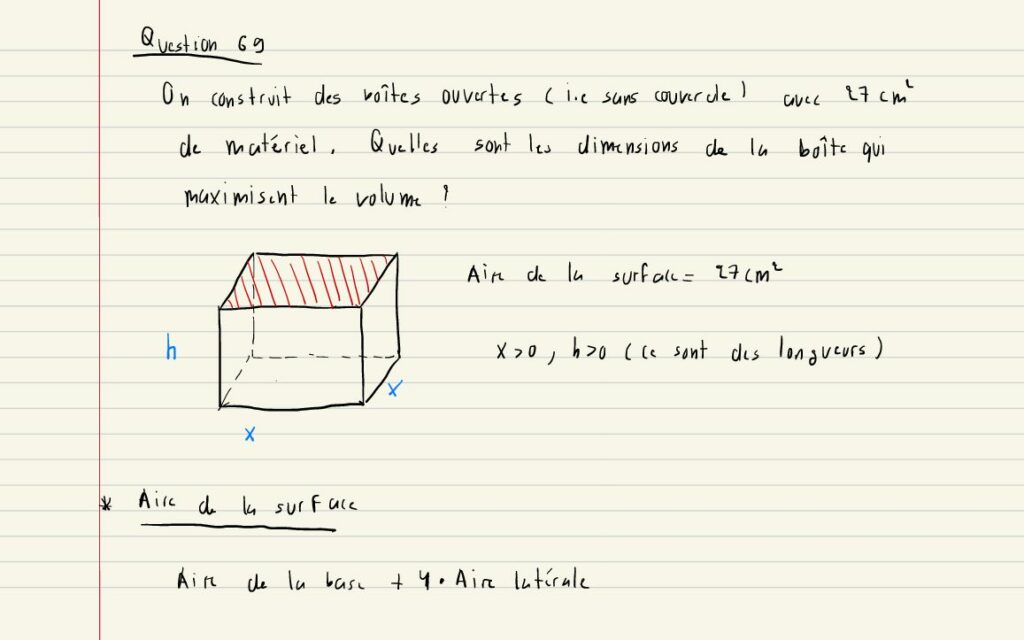 Question 69
On construit des boîtes ouvertes (i.e sans couvercle) avec 27 cm²
de matériel. Quelles sont les dimensions de la boîte qui
maximisent le volume ?
Aire de la surface = 27 cm²
h
x > 0, h > 0 (ce sont des longueurs)
x
x
* Aire de la surface
Aire de la base + 4 • Aire latérale